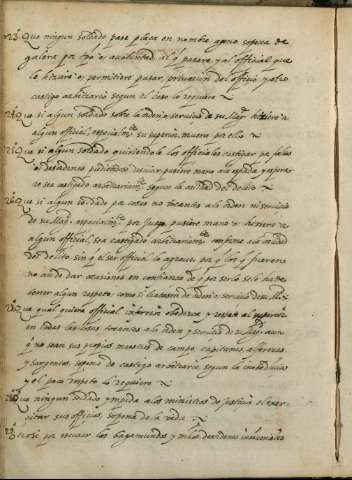 23 Que ningun soldado pase plaça en nombre ageno sopena de
galera por tpo o a voluntad al q̃ pasare y al official que
lo hiziere o permitiere pasar, privacion del officio y otro
castigo arbitrario segun el caso lo requiere
24 Que si algun soldado sobre la orden o servicio de su Mag.d hiriere a
algun official, especialm.te su superior, muera por ello
25 Que si algun soldado queriendole los officiales castigar por faltas
o desordenes pudiendose desviar pusiere mano a la espada
no sea castigado arbitrariam.te segun la calidad del delito
26 Que si algun soldado por cosas no tocantes a la orden ni servicio
de su Mag.d especialm.te por juego pusiere mano o hiriere a
algun official, sea castigado arbitrariam.te conforme a la calidad
del delito sin q̃ el ser official lo agrave por q̃ los q̃ fueren
no an de dar ocasiones en confiança de q̃ por serlo se les ha de
tener algun respeto, como si tratasen de orden o servicio de su Mag.d
27 Que qual quiera official inferior obedezca y respete al superior
en todas las cosas tocantes a la orden y servicio de su Mag.d aun
q̃ no sean sus propios maestros de campo, capitanes, alferezes
y sargentos sopena de castigo arbitrario segun la inobediencia
y el poco respeto lo requiere
28 Que ningun soldado ympida a los ministros de justicia el exer
citar sus officios, sopena de la vida
29 por escusar los bagamundos y mas desordenes